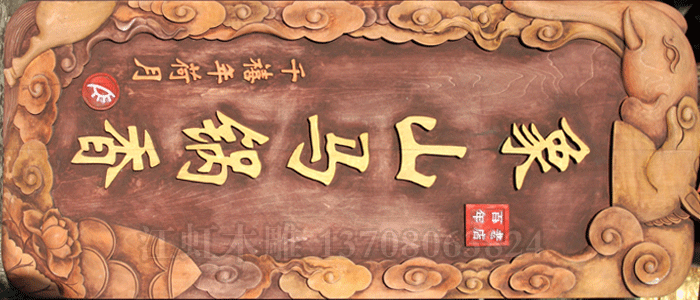 象山马锅香
千禧年荷月
百年老店
江虹木雕